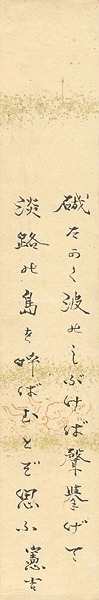 磯たかく波のしぶけば聲擧げて
淡路の島を呼ばむとぞ思ふ 憲吉